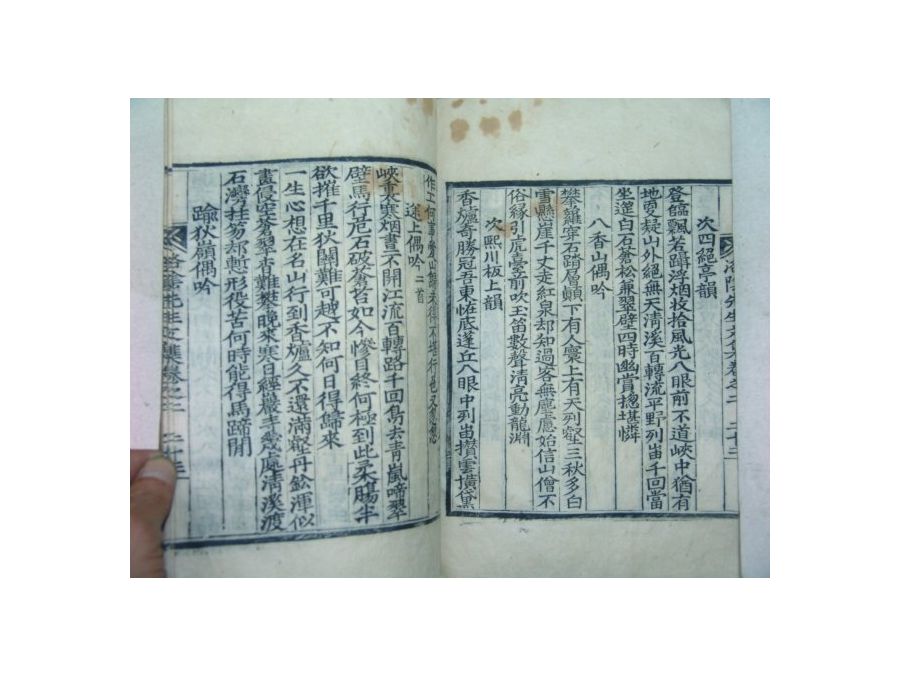 次四絶亭韻
登臨飄若躡浮烟收拾風光入眼前不道峽中猶有
地更疑山外絶無天淸溪百轉流平野列岫千回當
坐邊白石蒼松兼翠壁四時幽賞摠堪憐
入香山偶吟
攀蘿穿石踏層巓下有人寰上有天列壑三秋多白
雪懸崖千丈走紅泉却知過客無塵慮始信山僧不
俗緣引虎臺前吹玉笛數聲淸亮動龍淵
次熙川板上韻
香爐奇勝冠吾東恠底蓬丘入眼中列岫攅雲橫黛
途上偶吟 二首
峽裏寒烟晝不開江流百轉路千回鳥去靑嵐啼翠
壁馬行危石破蒼苔如今慘目終何極到此柔腸半
欲摧千里狄關難可越不知何日得歸來
一生心想在名山行到香爐久不還滿壑丹鈆渾似
畫侵空蒼翠杳難攀晩來寒日經巖㫖愁處淸溪渡
石灣拄笏却慙形役苦何時能得馬蹄閑
踰狄嶺偶吟
洛陰先生文集卷之二 二十三